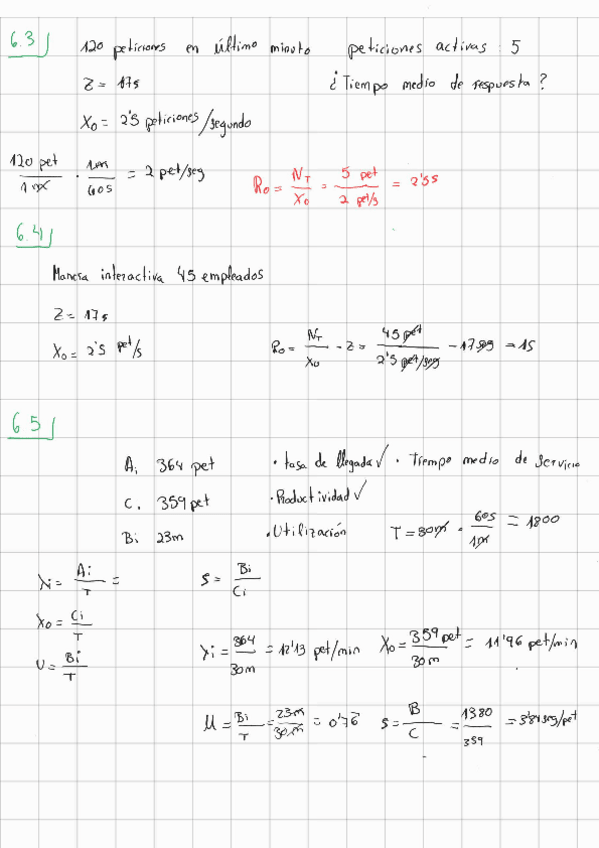 6.3 120 peticiones en último minuto peticiones activas: 5
Z = 17s ¿Tiempo medio de respuesta?
X0 = 2'5 peticiones/segundo
120 pet / 1m · 1m / 60s = 2 pet/seg R0 = NT / X0 = 5 pet / 2 pet/s = 2'5s
6.4
Manera interactiva 45 empleados
Z = 17s
X0 = 2'5 pet/s R0 = NT / X0 - Z = 45 pet / 2'5 pet/seg - 17seg = 1s
6.5
Ai 364 pet · tasa de llegada ✓ · Tiempo medio de servicio
C. 359 pet · Productividad ✓
Bi 23m · Utilización T = 30m · 60s / 1m = 1800
λi = Ai / T = S = Bi / Ci
X0 = Ci / T
U = Bi / T λi = 364 / 30m = 12'13 pet/min X0 = 359 pet / 30m = 11'96 pet/min
U = Bi / T = 23m / 30m = 0'76 S = B / C = 1380 / 359 = 3'84 seg/pet